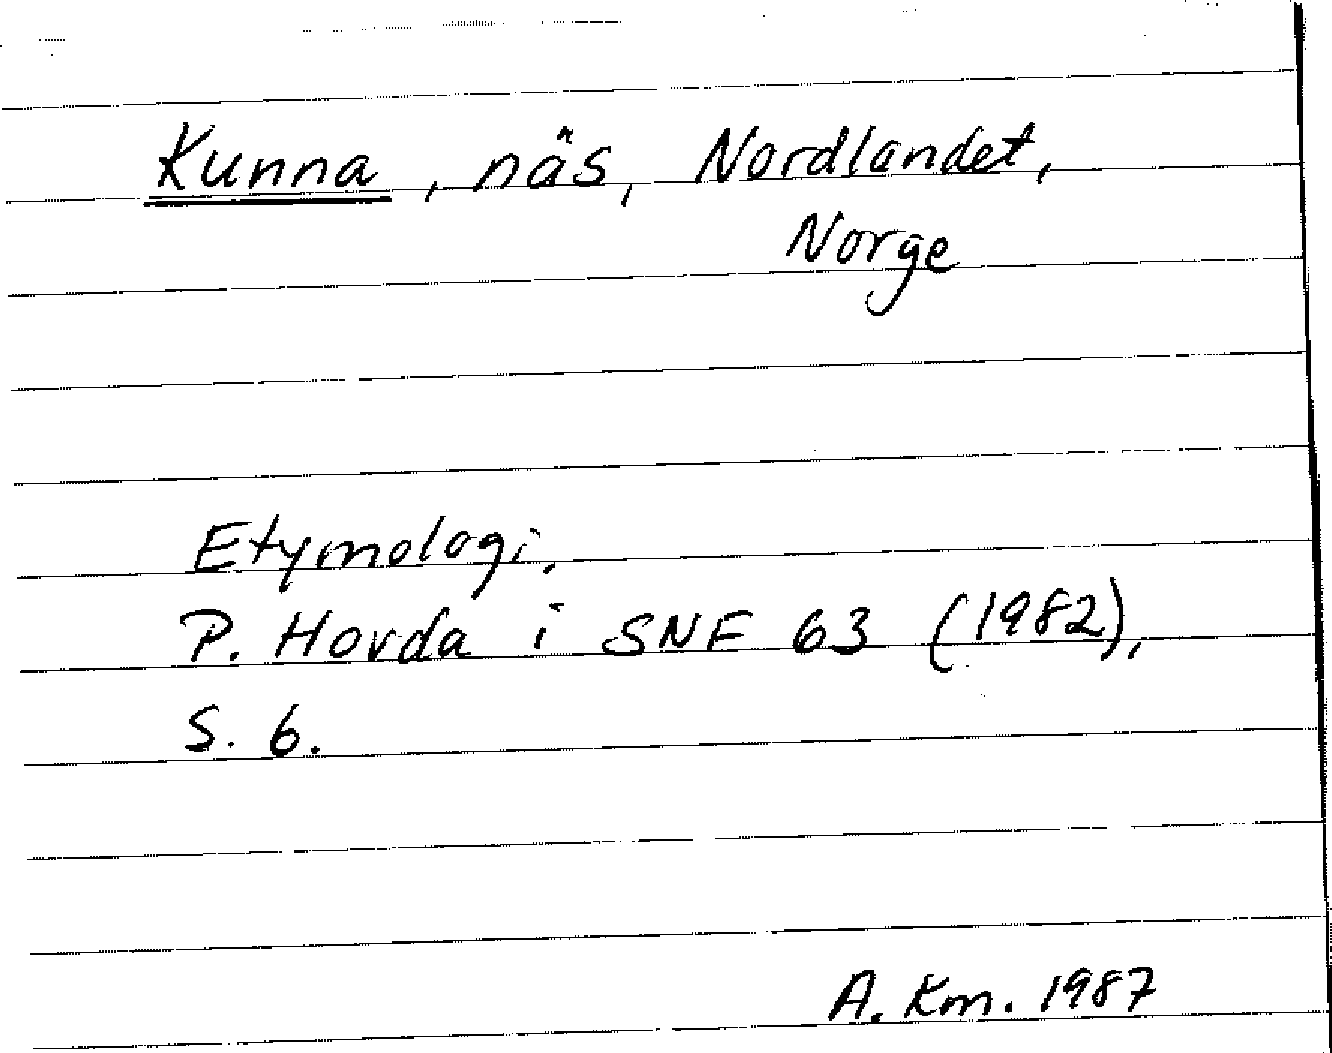 Kunna, näs, Nordlandet,
Norge
Etymologi.
P. Hovda i SNF 63 (1982),
S. 6.
A. Km. 1987